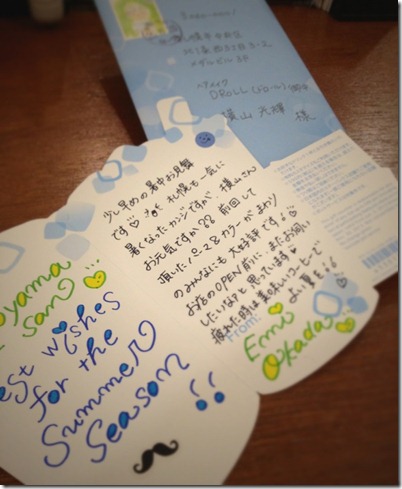 札幌市中央区
メダルビル3F
ヘアメイク
DROLL(ドロール)御中
横山 様
少し早めの暑中お見舞
です♡ 札幌も一気に
暑くなったカンジですが、横山さん
お元気ですか?? 前回して
頂いたパーマ&カラーがまわり
のみんなにも大好評です!♡
お店のOPEN前に、またお伺い
したいなーと思っています♡
疲れた時は美味しいコーヒーで
よい夏を!!
From:
Emi
Okada
yama
san
est wishes
for the
Summer
Season
!!